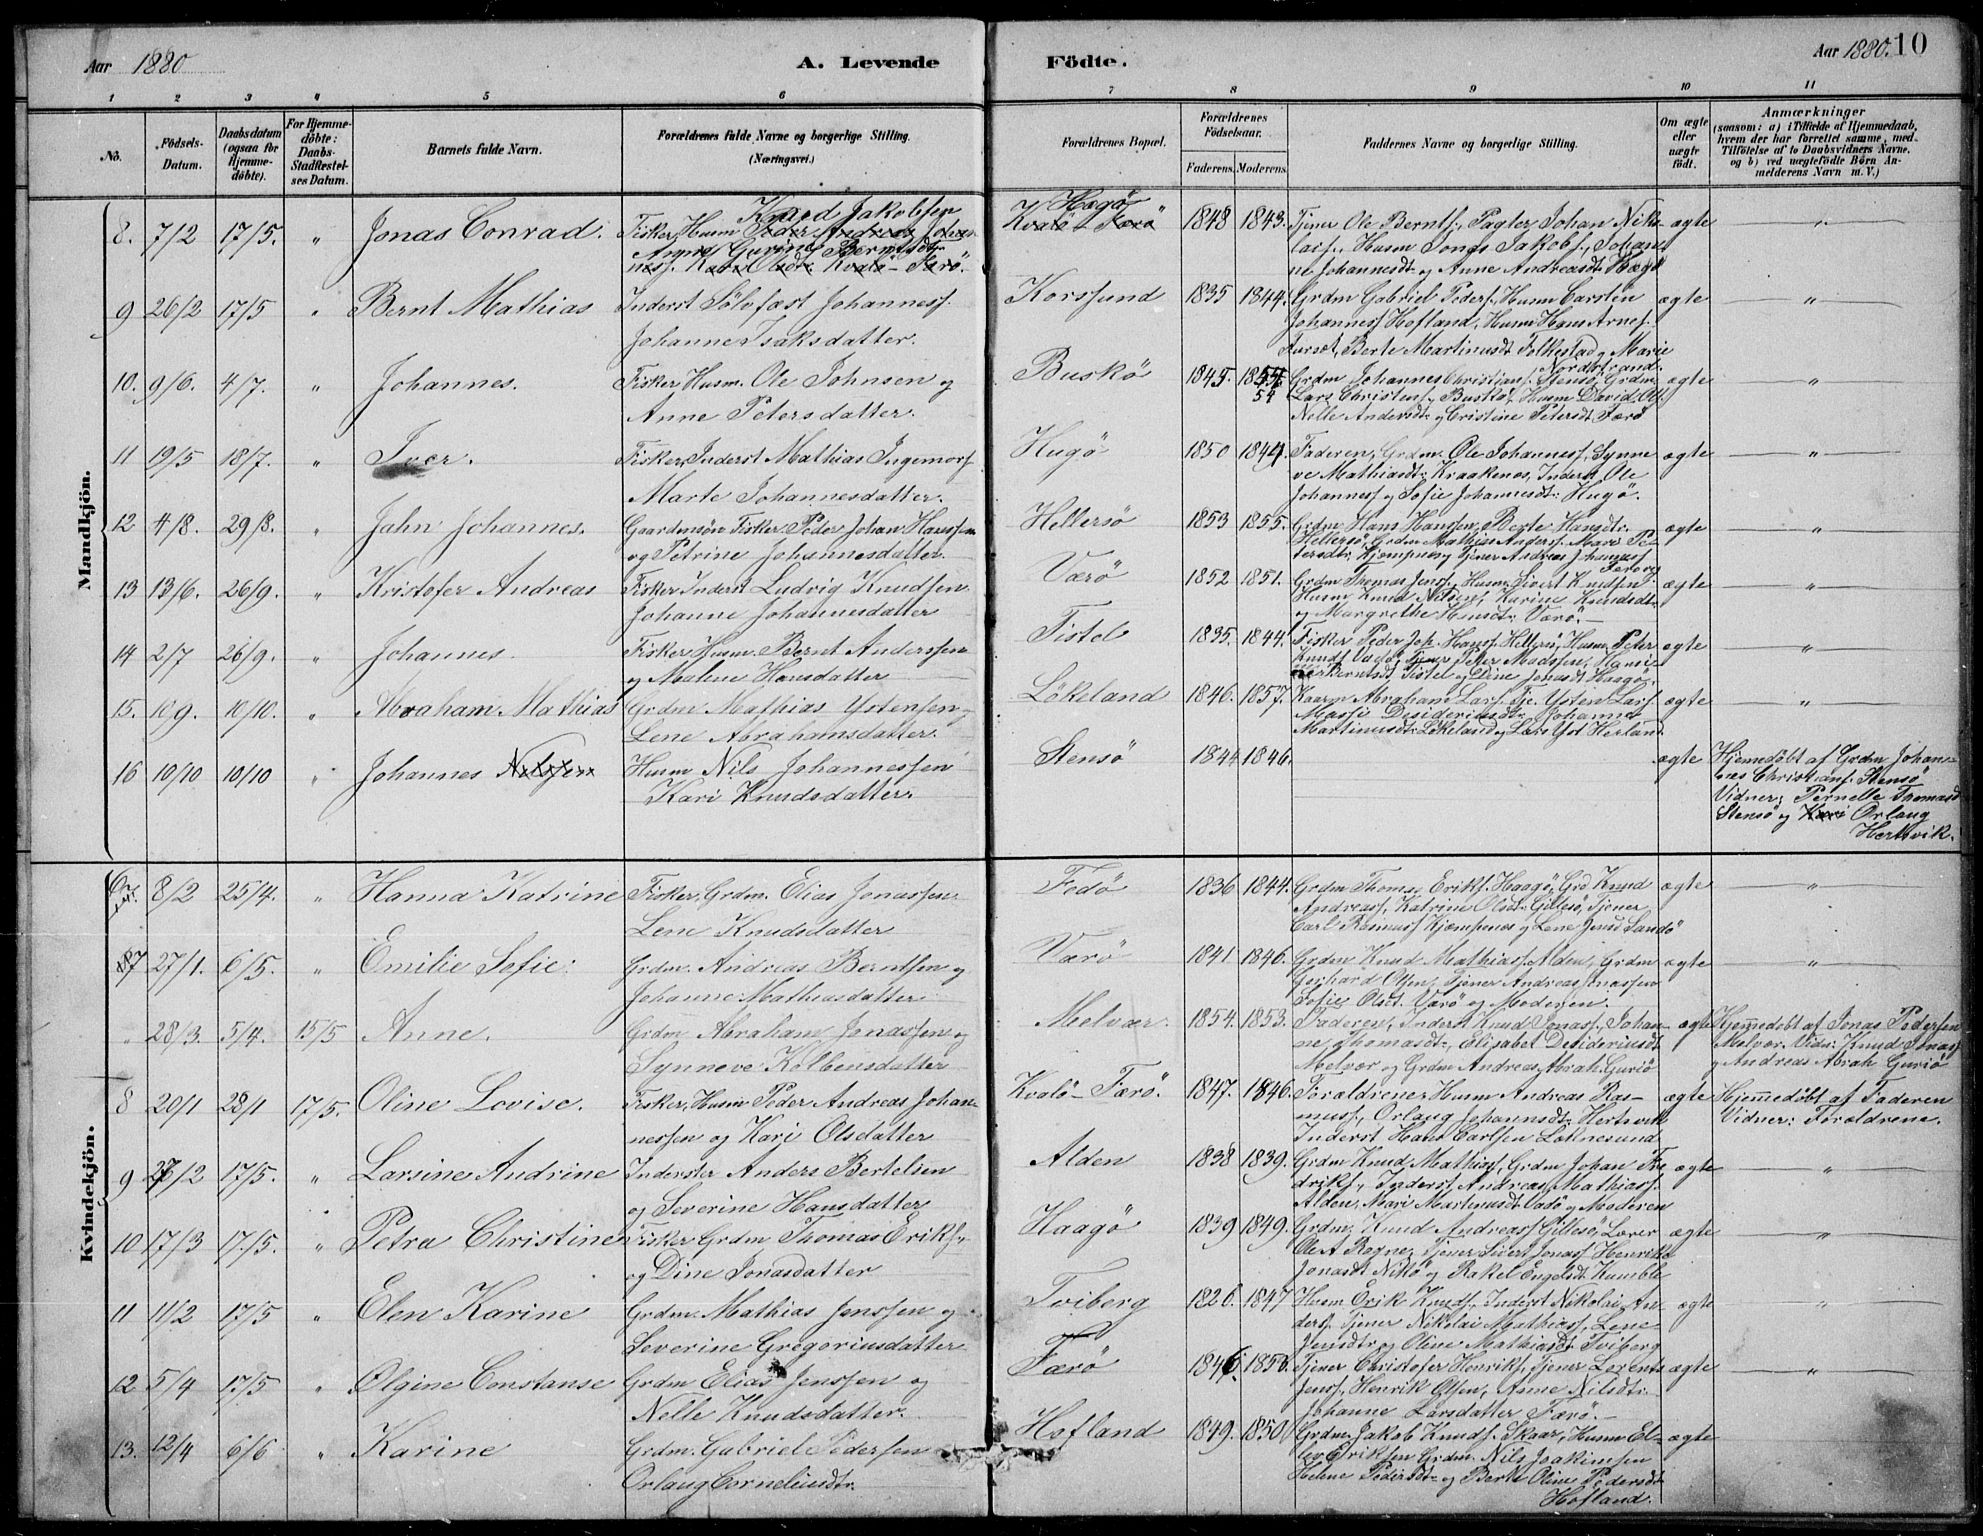 Aar 1880
A. Levende Födte.
Aar 1880. 10
1 2 3 4 5 6 7 8 9 10 11
No.
Födsels-Datum.
Daabsdatum (ogsaa for Hjemme-döbte).
For Hjemme-döbte: Daabs-Stadfestel-ses Datum.
Barnets fulde Navn.
Forældrenes fulde Navne og borgerlige Stilling. (Næringsvei.)
Forældrenes Bopæl.
Forældrenes Födselsaar.
Faderens. Moderens.
Faddernes Navne og borgerlige Stilling.
Om ægte eller uægte födt.
Anmærkninger
(saasom: a) i Tilfælde af Hjemmedaab, hvem der har forrettet samme, med Tilföielse af to Daabsvidners Navne. og b) ved uægtefödte Börn An-melderens Navn m. V.)
Mandkjön.
8. 7/2 17/5. " Jonas Conrad. Knud Jakobsen
Fisker Husm Peder Andreas Johan
Anne Gurine Berntsdtr
nesf. Kari Olsdtr Kvalö-Færö.
Hægö
Kvalö-Færö 1848 1843. Tjener Ole Berntf., Pagter Johan Nik-
laif., Husm Jonas Jakobf., Johan-
ne Johannesdt og Anne Andreasdt Hægö ægte "
9 26/2 17/5 " Bernt Mathias Inderst Sölvfast Johannesf.
Johanne Isaksdatter. Korssund 1835 1844. Grdm Gabriel Pedersf., Husm Carsten
Johannesf Hofland, Husm Hans Arnef.
Aurset, Berte Martinusdt Folkestad og Marie
Nordstrand. ægte "
10. 9/6. 4/7. " Johannes. Fisker Husm. Ole Johnsen og
Anne Petersdatter. Buskö 1845. 1854 54 Grdm Johannes Christianf. Stensö, Grdm
Lars Christenf. Buskö, Husm David Olf.
Nelle Andersdt og Cristine Petersdt Færö ægte "
11 19/5 18/7. " Iver. Fisker, Inderst Mathias Ingemorf
Marte Johannesdatter. Hugö 1850 1844. Faderen, Grdm. Ole Johannesf., Synne
ve Mathiasdt. Kraakenes, Inderst Ole
Johannesf og Sofie Johannesdt. Hugö. ægte "
12 4/8. 29/8. " Jahn Johannes. Gaardmsön Fisker Peder Johan Hanssen
og Petrine Johannesdatter Hellersö 1853 1855. Grdm Hans Hanssen, Berte Hansdtr.
Hellersö, Grdm Mathias Andersf. Mari Pe-
tersdtr. Kjempenes og Tjener Andreas Johannesf
Færöy. ægte "
13 13/6. 26/9. " Kristofer Andreas Fisker Inderst Ludvig Knudsen
Johanne Johannesdatter Værö 1852 1851. Grdm Thomas Jensf., Husm. Sivert Knudsen
Husm Knud Nilsen, Karine Knudsdt.
og Margrethe Hansdt. Værö. ægte "
14 2/7 26/9. " Johannes. Fisker Husm. Bernt Anderssen
og Malene Hansdatter Tistel 1835. 1844. Fisker Peder Joh. Hansf. Hellersö, Husm Peter
Knudf Vadö, Tjener Peter Madssen,
Berntsdt Tistel og Dine Jonasdt Haagö. ægte "
15. 10/9. 10/10. " Abraham Mathias Grdm Mathias Ystensen og
Lene Abrahamsdatter. Lökeland 1846. 1857. Kaarm Abraham Larsf. Tje. Ysten Larsf
Massi Desideriusdt. Johanne
Martinusdt. Lökeland og Lars Yst Herland ægte "
16 10/10 10/10 " Johannes Nilssen Husm Nils Johannessen
Kari Knudsdatter. Stensö 1844 1846. ægte Hjemmedöbt af Grdm Johan-
nes Christianf. Stensö
Vidner: Pernelle Thomasd
Stensö og Kari Orlaug
Hertsvik.
Kvindekjön.
6 8/2 25/4. " Hanna Katrine Fisker, Grdm. Elias Jonassen.
Lene Knudsdatter Fedö 1836 1844. Grdm Thomas Erikf. Haagö, Grd Knud
Andreasf., Katrine Olsdt. Gillesö, Tjener
Carl Rasmusf Kjempenes og Lene Jensd Sandö ægte "
7 27/1. 6/5. " Emilie Sofie. Grdm. Andreas Berntsen og
Johanne Mathiasdatter Værö 1841 1846. Grdm Knud Mathiasf. Alden, Grdm
Gerhard Olsen, Tjener Andreas Jonassen
Sofie Olsdt. Værö og Moderen. ægte "
" 28/3. 5/4. 15/5 Anne. Grdm Abraham Jonassen og
Synneve Kolbensdatter Melvær. 1854. 1853. Faderen, Inderst Knud Jonasf., Johan-
ne Thomasdt., Elisabet Desideriusdt
Melver og Grdm Andreas Abrah. Guriö ægte Hjemmedöbt af Jonas Pedersen
Melvær. Vidn: Knud Jonasf
og Andreas Abrah Guriö
8 20/1 28/1 17/5. Oline Lovise. Fisker, Husm Peder Andreas Johan-
nessen og Kari Olsdatter Kvalö-Færö. 1847. 1846. Foraldrene Husm Andreas Ras-
musf., Orlaug Johannsdt. Hertsvik
Inderst Hans Carlsen Loknesund ægte Hjemmedöbt af Faderen
Vidner: Foraldrene.
9 27/2 17/5. " Larsine Andrine Inderster Anders Bertelsen
og Severine Hansdatter Alden 1838 1839. Grdm Knud Mathiasf, Grdm Johan Fre
drikf., Inderst Andreas Mathiasf.
Alden, Mari Martinusdt Vadö og Moderen ægte "
10 17/3 17/5. " Petra Christine Fisker Grdm Thomas Erikf.
og Dine Jonasdatter Haagö 1839 1849. Grdm. Knud Andreasf Gillesö, Lærer
Ole A Regne, Tjener Sivert Jonasf Henrikke
Jonasdt Nikö og Rakel Engelsdt Kumble ægte "
11 11/2 17/5 " Elen Karine Grdm. Mathias Jenssen og
Severine Gregoriusdatter Tviberg 1826. 1847 Husm Erik Knudf., Inderst Nikolai An-
dersf. Tjener Nikolai Mathiasf, Lene
Jensdt og Oline Mathiasdt Tviberg ægte "
12 5/4 17/5 " Olgine Constanse Grdm Elias Jenssen og
Nelle Knudsdatter. Færö 1846. 1856. Tjener Christofer Henrikf, Tjener Lorents
Jensf., Henrik Olsen, Anne Nilsdt.
Johanne Larsdatter Færö. ægte "
13. 12/4 6/6 " Karine Grdm. Gabriel Pedersen
Orlaug Corneliusdt. Hofland 1849. 1850 Grdm. Jakob Knudf. Skaar, Husm El-
lev Eriksen Grdm. Nils Joakimsen
Helene Pedersdt og Berte Oline Pedersdt
Hofland. ægte